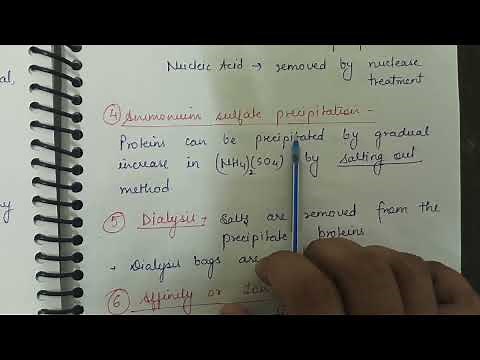 Nucleic Acid → removed by nuclease
treatment
al,
④ Ammonium sulfate precipitation -
Proteins can be precipitated by gradual
increase in (NH4)2(SO4) by salting out
method.
y
⑤ Dialysis - Salts are removed from the
precipitate proteins
→ Dialysis bags are
⑥ Affinity or